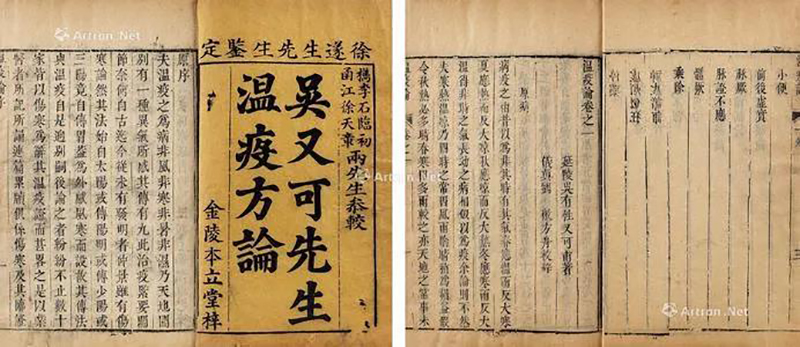 徐遂生先生鑒定
檇李石臨初
函江徐天章
兩先生叅較
吳又可先生
溫疫方論
金陵本立堂梓
原序
夫溫疫之為病非風非寒非暑非濕乃天地間
別有一種異氣所感其傳有九此治疫緊要關
節奈何自古迄今從未有發明者仲景雖有傷
寒論然其法始自太陽或傳陽明或傳少陽或
三陽竟自傳胃蓋為外感風寒而設故其傳法
與溫疫自是迥別嗣後論之者紛紛不止數十
家皆以傷寒為辭其溫疫證而甚畧之是以業
醫者所記所誦連篇累牘俱係傷寒及其臨證
小便
前後虛實
脈厥
脈證不應
體厥
乘除
溫疫論卷之一
延陵吳有性又可甫著
原病
病疫之由昔以為非其時有其氣春應溫而反大寒
夏應熱而反大凉秋應凉而反大熱冬應寒而反大
溫得非時之氣長幼之病相似以為疫余論則不然
夫寒熱溫凉乃四時之常因風雨陰晴稍為損益假
令秋熱必多晴春寒因多雨較之亦天地之常事未
Artron.Net
Artron.Net
Artron.Net
Artron.Net